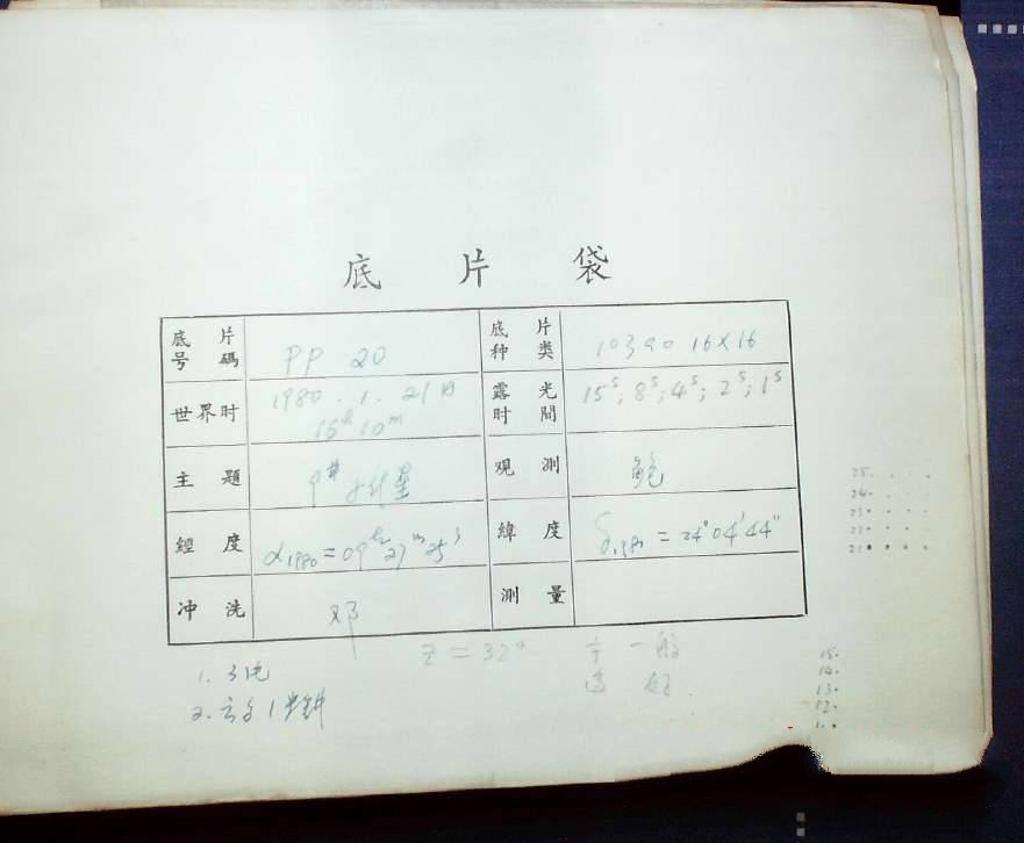 底 片 袋
底 片 号 碼 PP 20 底 片 种 类 103aO 16×16
世界时 1980. 1. 21日 15h 10m 露 光 时 間 15s; 8s; 4s; 2s; 1s
主 題 9# 小行星 观 測 鲍
經 度 α1980 = 09h 27m 25s 緯 度 δ1980 = 24°04′44″
冲 洗 邓 測 量
Z = 32° 宁 一般
好
1.
2.
25.
24.
23.
22.
21.
15.
14.
13.
12.